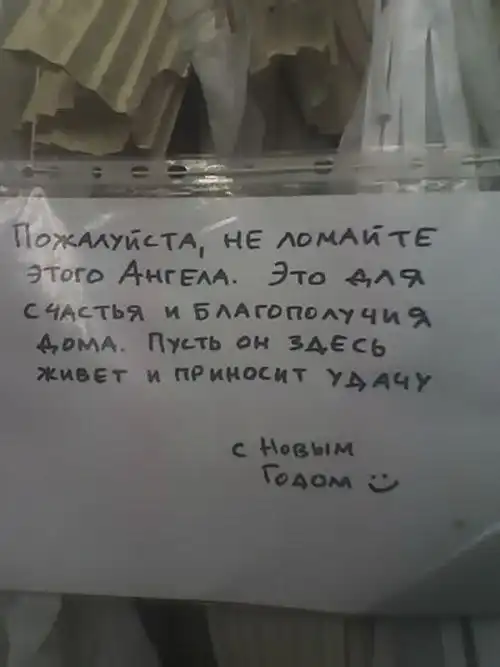 Пожалуйста, не ломайте
этого Ангела. Это для
счастья и благополучия
дома. Пусть он здесь
живет и приносит удачу
с Новым
Годом :)